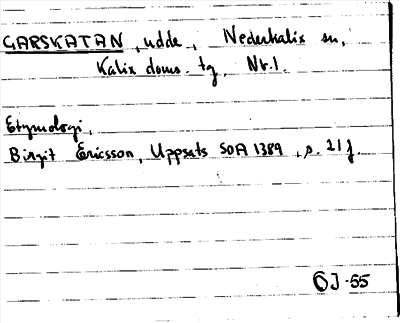 GARSKATAN, udde, Nederkalix sn,
Kalix doms. tg, Nr.1.
Etymologi,
Birgit Ericsson, Uppsats SOA 1389, s. 21 f
OJ-55